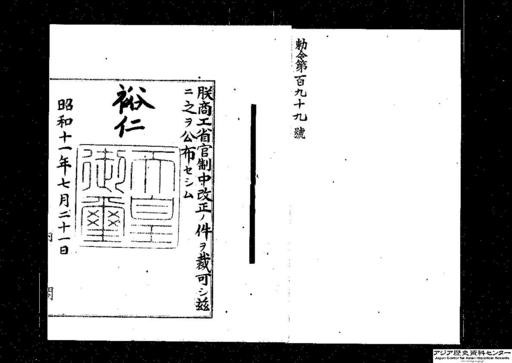 勅令第百九十九號
朕商工省官制中改正ノ件ヲ裁可シ茲
ニ之ヲ公布セシム
裕仁
天皇御璽
昭和十一年七月二十一日
内閣
アジア歴史資料センター
Japan Center for Asian Historical Records